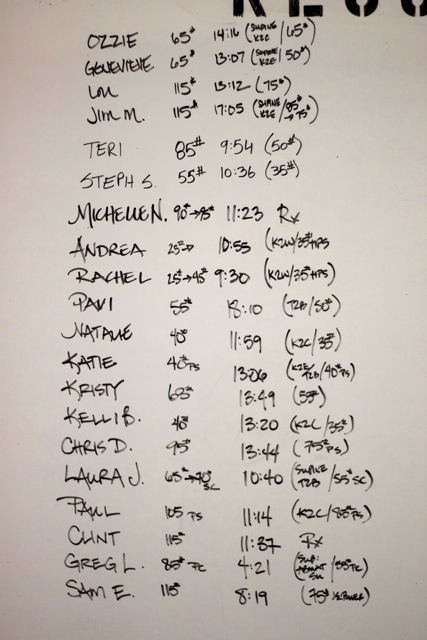 OZZIE 65# 14:16 (SUPINE K2C / 65#)
GENEVIEVE 65# 13:07 (SUPINE K2E / 50#)
LOU 115# 13:12 (75#)
JIM M. 115# 17:05 (SUPINE K2E / 85# → 75#)
TERI 85# 9:54 (50#)
STEPH S. 55# 10:36 (35#)
MICHELLE N. 90#→95# 11:23 Rx
ANDREA 25#→ 10:55 (K2W/35# HPS)
RACHEL 25#→45# 9:30 (K2W/35# HPS)
PAVI 55# 18:10 (T2B/50#)
NATALIE 40# 11:59 (K2C/35#)
KATIE 40# PS 13:06 (K2E T2B/40# PS)
KRISTY 63# 13:49 (53#)
KELLI B. 40# 13:20 (K2C/35#)
CHRIS D. 95# 13:44 (75# PS)
LAURA J. 65#→70# SC 10:40 (SUPINE T2B /55# SC)
PAUL 105 PS 11:14 (K2C/85# PS)
CLINT 115# 11:37 Rx
GREG L. 85# PC 4:21 (SUP. SU /55# PC)
SAM E. 115# 8:19 (75# POWER)